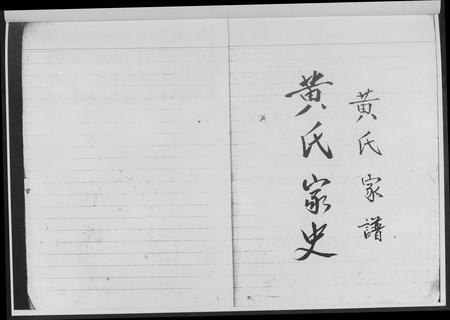 黄氏家譜
黄氏家史